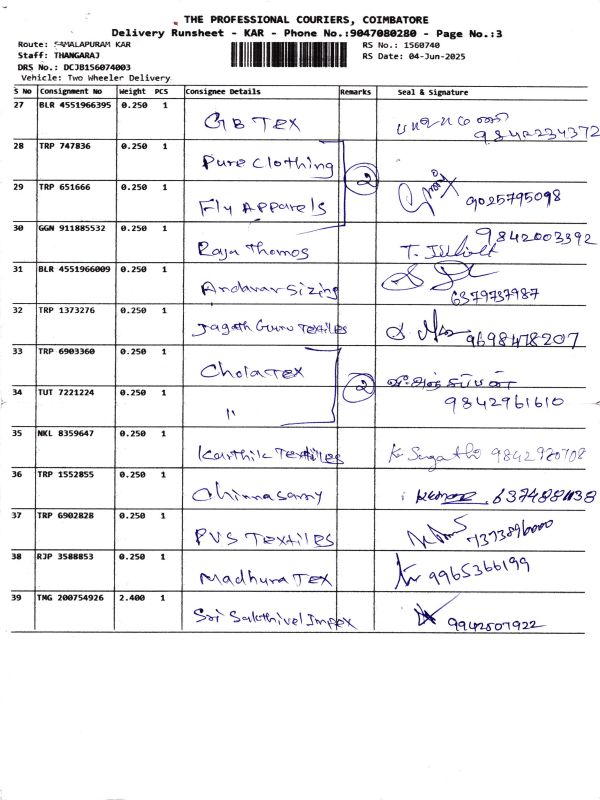 THE PROFESSIONAL COURIERS, COIMBATORE
Delivery Runsheet - KAR - Phone No.:9047080280 - Page No.:3
Route: SAMALAPURAM KAR
RS No.: 1560740
Staff: THANGARAJ
RS Date: 04-Jun-2025
DRS No.: DCJB156074003
Vehicle: Two Wheeler Delivery
S No Consignment No Weight PCS Consignee Details Remarks Seal & Signature
27 BLR 4551966395 0.250 1 GB TEX 9842234372
28 TRP 747836 0.250 1 Pure Clothing
2
29 TRP 651666 0.250 1 Fly Apparels 9025795098
30 GGN 911885532 0.250 1 Raja Thomos 9842003392
31 BLR 4551966009 0.250 1 Andavar Sizing 6379737987
32 TRP 1373276 0.250 1 Jagath Guru Textiles 9698478207
33 TRP 6903360 0.250 1 Chola TEX
2
34 TUT 7221224 0.250 1 " 9842961610
35 NKL 8359647 0.250 1 Karthik Textiles
36 TRP 1552855 0.250 1 Chinnasamy
37 TRP 6902828 0.250 1 PVS Textiles
38 RJP 3588853 0.250 1 Madhura TEX 9965366199
39 TMG 200754926 2.400 1 Sri Sakthivel Impex 9942507922